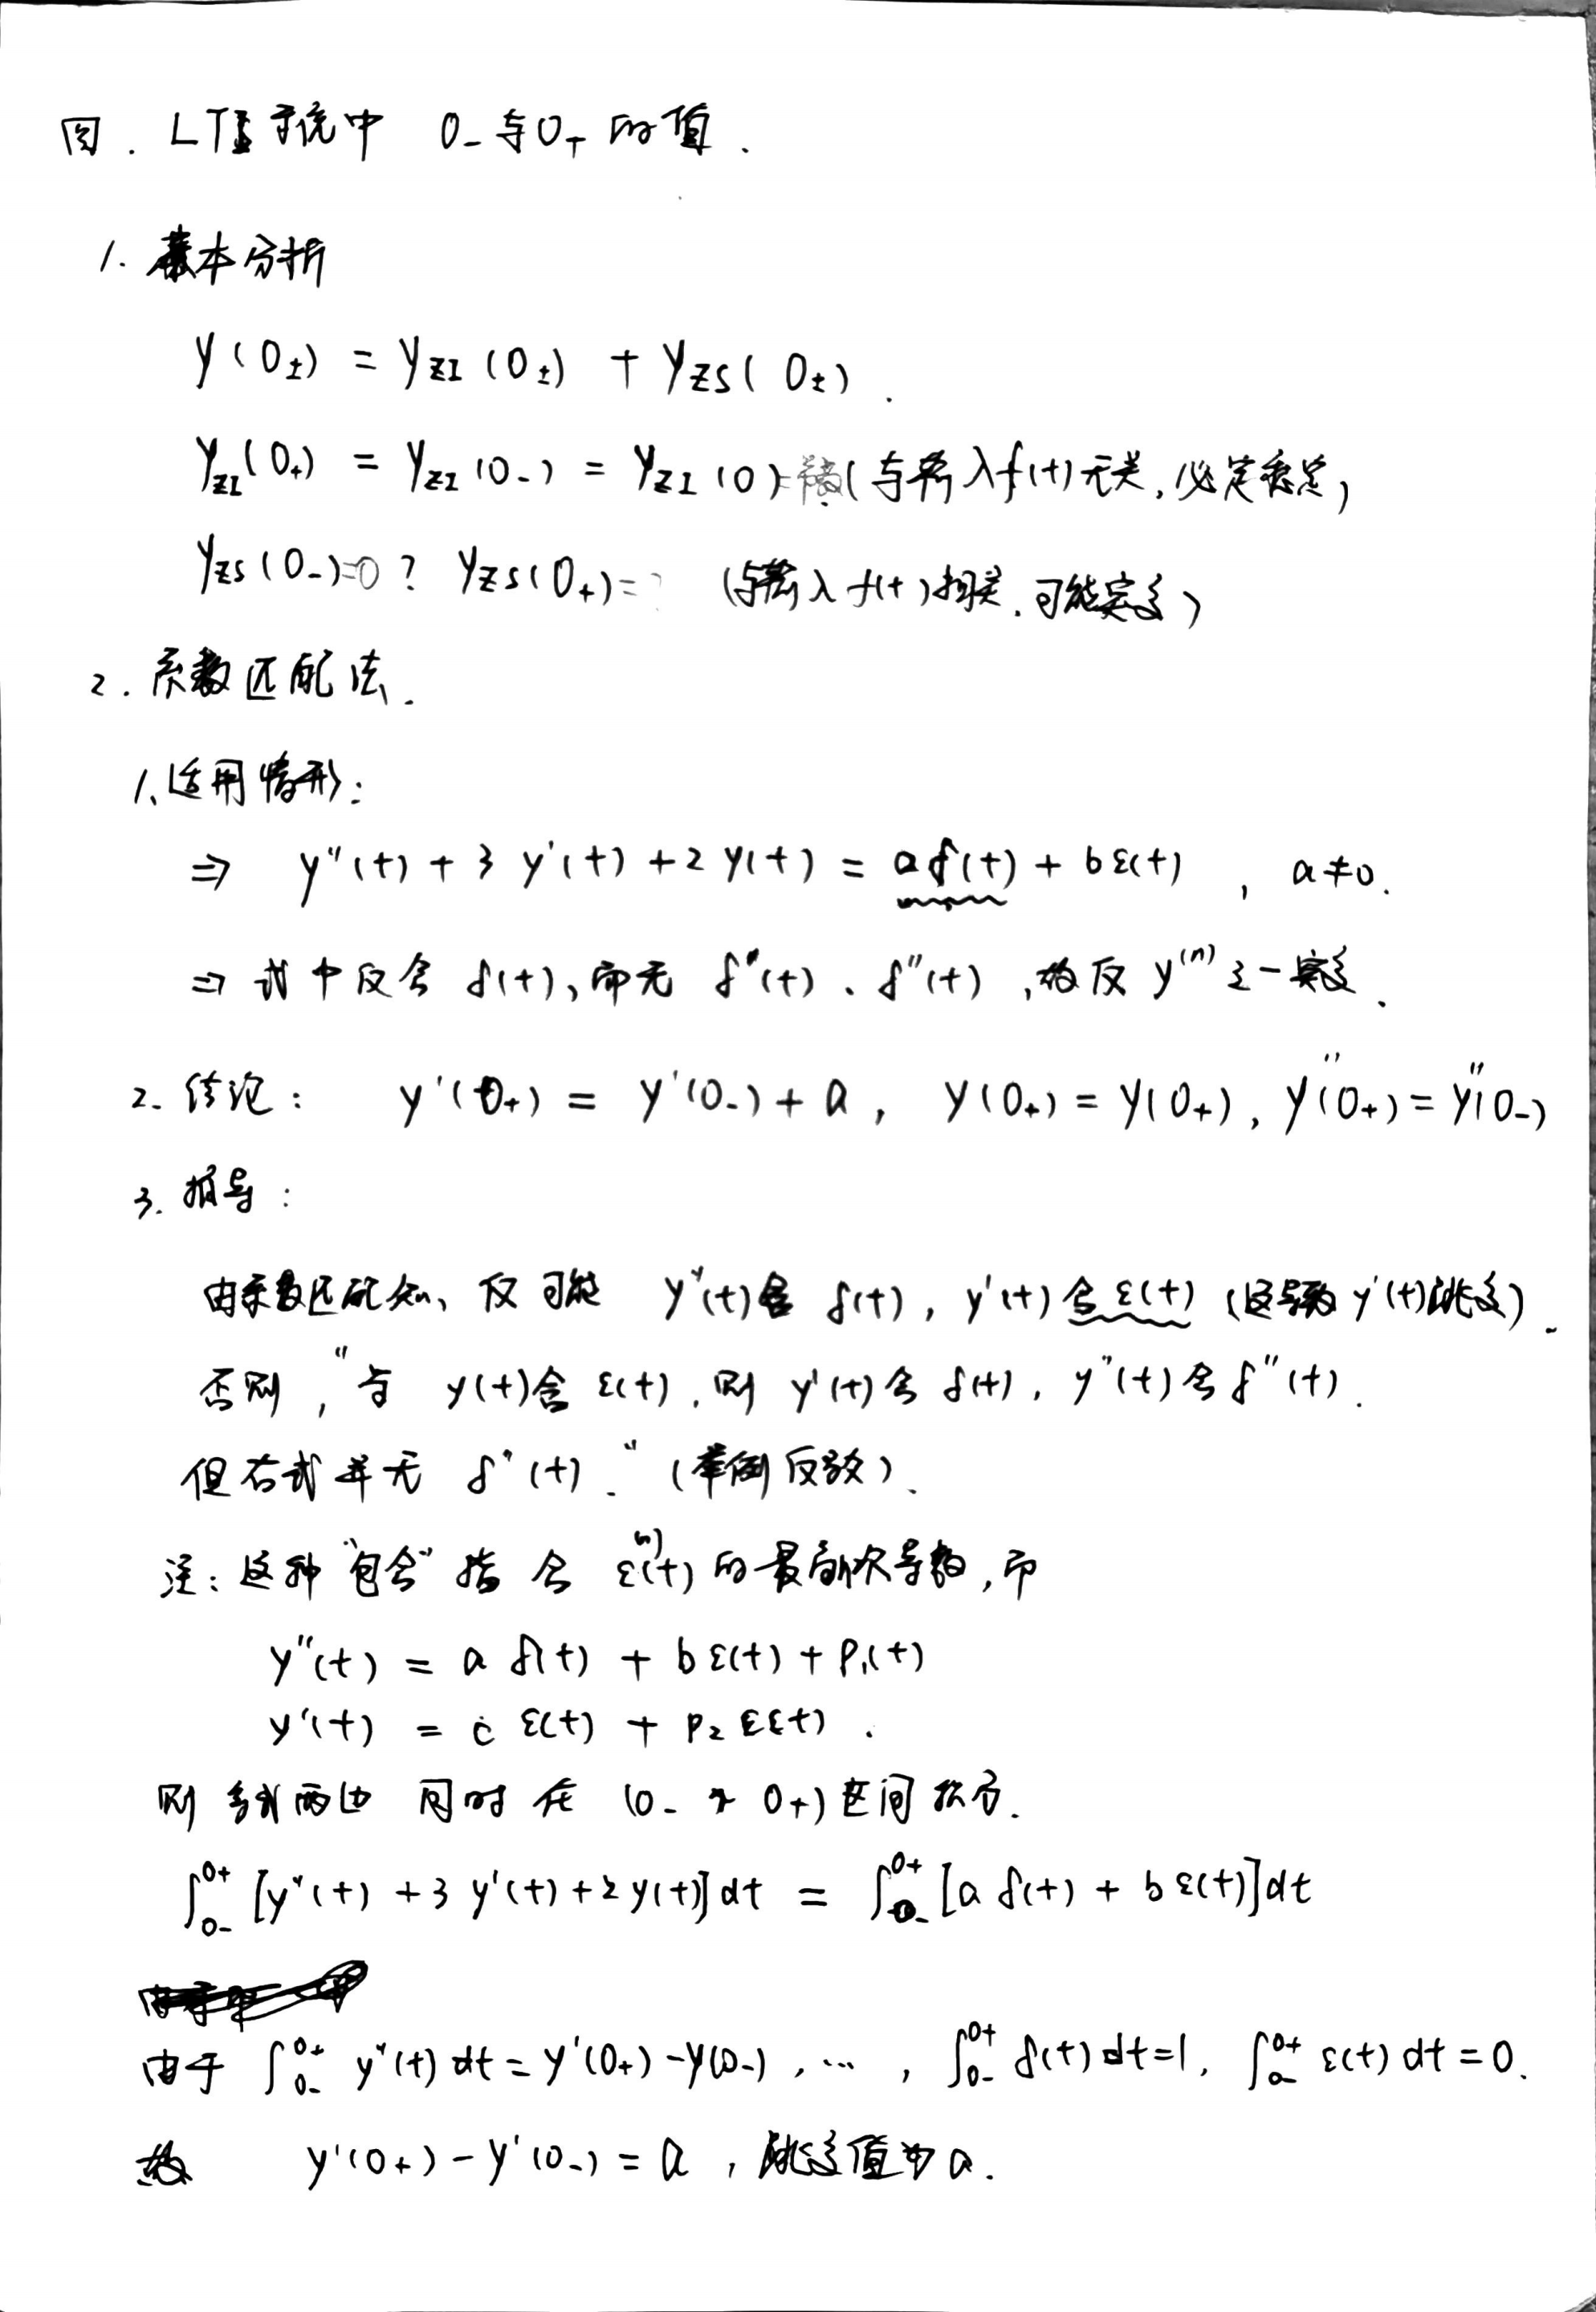 四. LTI系统中 0₋与0₊的值.
1. 基本分析
y(0±) = yZI(0±) + yZS(0±).
yZI(0₊) = yZI(0₋) = yZI(0) (与输入f(t)无关,必定稳定)
yZS(0₋)=0? yZS(0₊)=? (与输入f(t)相关.可能突变)
2. 系数匹配法.
1、适用情形:
⇒ y''(t) + 3y'(t) + 2y(t) = aδ(t) + bε(t), a≠0.
⇒ 式中仅含 δ(t),而无 δ'(t)、δ''(t),故仅 y⁽ⁿ⁾之一突变.
2. 结论: y'(0₊) = y'(0₋) + a, y(0₊) = y(0₊), y''(0₊) = y''(0₋)
3. 推导:
由系数匹配知、仅可能 y''(t)含 δ(t), y'(t)含ε(t) (这导致y'(t)跳变).
否则,"若 y(t)含 ε(t),则 y'(t)含 δ(t), y''(t)含δ''(t).
但右式并无 δ'(t)." (举例反驳).
注:这种"包含"指含 ε⁽ⁿ⁾(t)的最高次导数,而
y''(t) = aδ(t) + bε(t) + p₁(t)
y'(t) = cε(t) + p₂ε(t).
则 等式两边 同时在 (0₋ → 0₊)区间积分.
∫₀₋⁰⁺ [y''(t) + 3y'(t) + 2y(t)]dt = ∫₀₋⁰⁺ [aδ(t) + bε(t)]dt
由于 ∫₀₋⁰⁺ y''(t)dt = y'(0₊) - y(0₋), …, ∫₀₋⁰⁺ δ(t)dt=1, ∫₀₋⁰⁺ ε(t)dt = 0.
故 y'(0₊) - y'(0₋) = a, 跳变值为a.